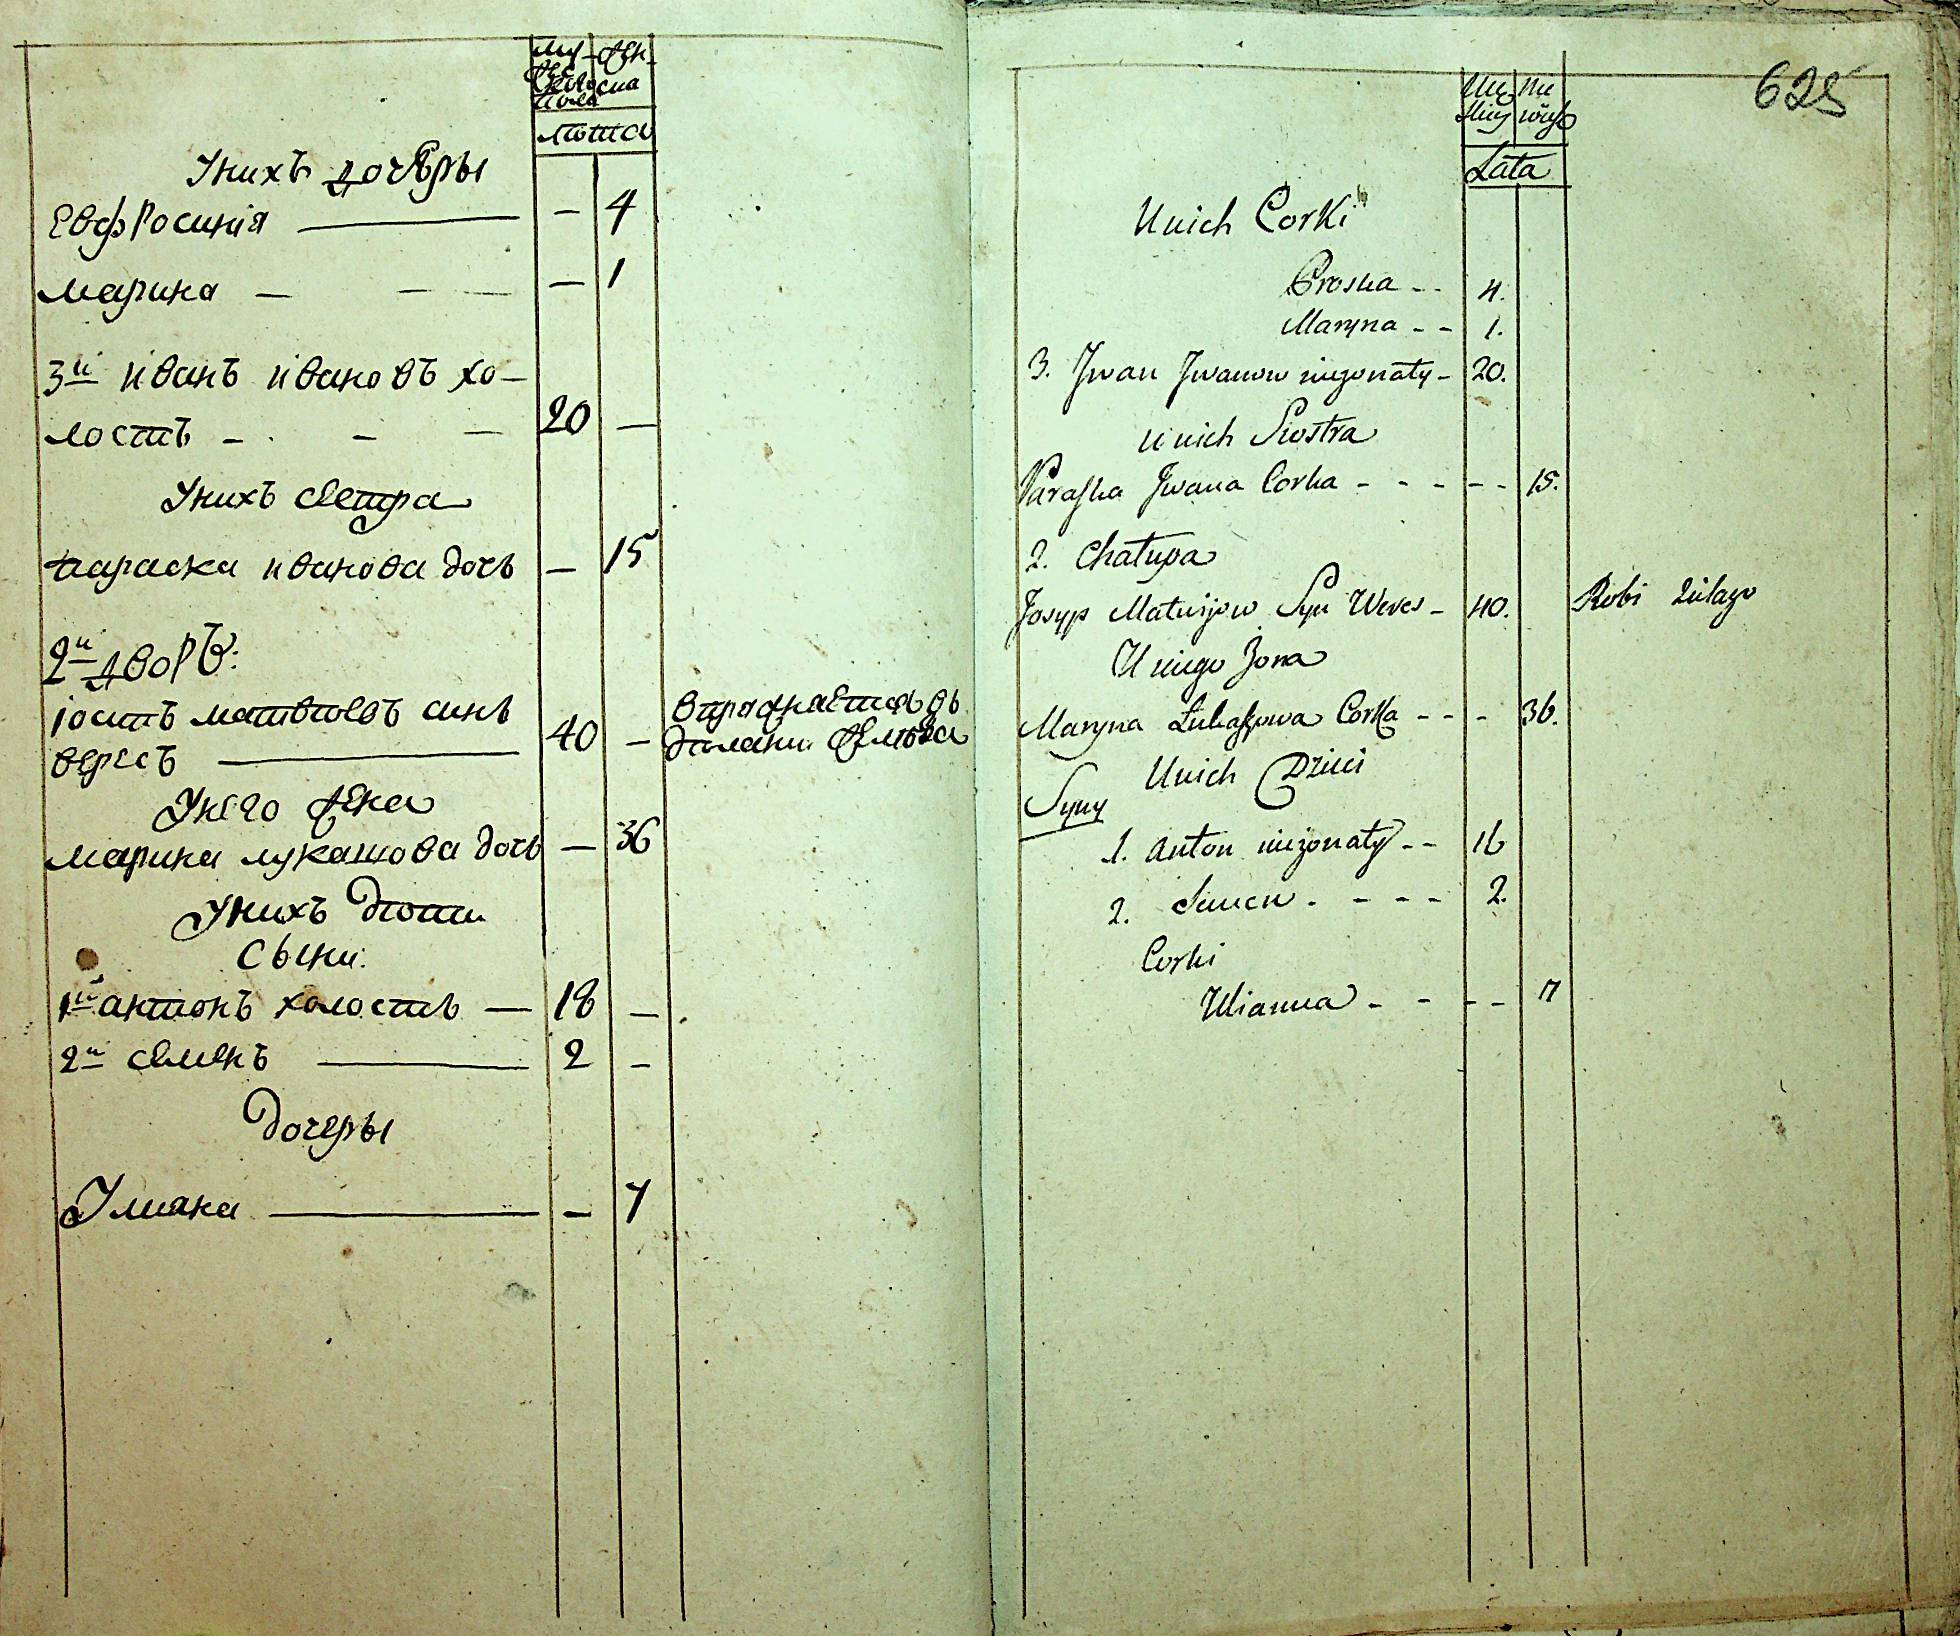 му- жен-
жес
кова ска
пола
лѣта
У нихъ дочѣры
Евфросинія — 4
Марина — 1
3й иванъ ивановъ хо-
лостъ 20 —
У нихъ сестра
параска иванова дочь — 15
2й дворъ:
іосипъ матвѣевъ синъ
вересъ 40 —
упражнается въ
У него жена
марина лукашова дочь — 36
У нихъ дѣти
сыни:
1й антонъ холостъ — 18 —
2й семенъ 2 —
дочеры
Улиана — 7
625
Lata
U nich Corki
Proska - - 4.
Maryna - - 1.
3. Jwan Jwanow niezonaty - 20.
U nich Siostra
Paraska Jwana Corka - - - - - 15.
2. Chałupa
Josyp Matwijow Syn Weres - 40. Robi
U niego Zona
Maryna Łukaszowa Corka - - - 36.
U nich Dzieci
Syny
1. Anton niezonaty - - 16
2. Semen - - - - 2.
Corki
Ulianna - - - - 7